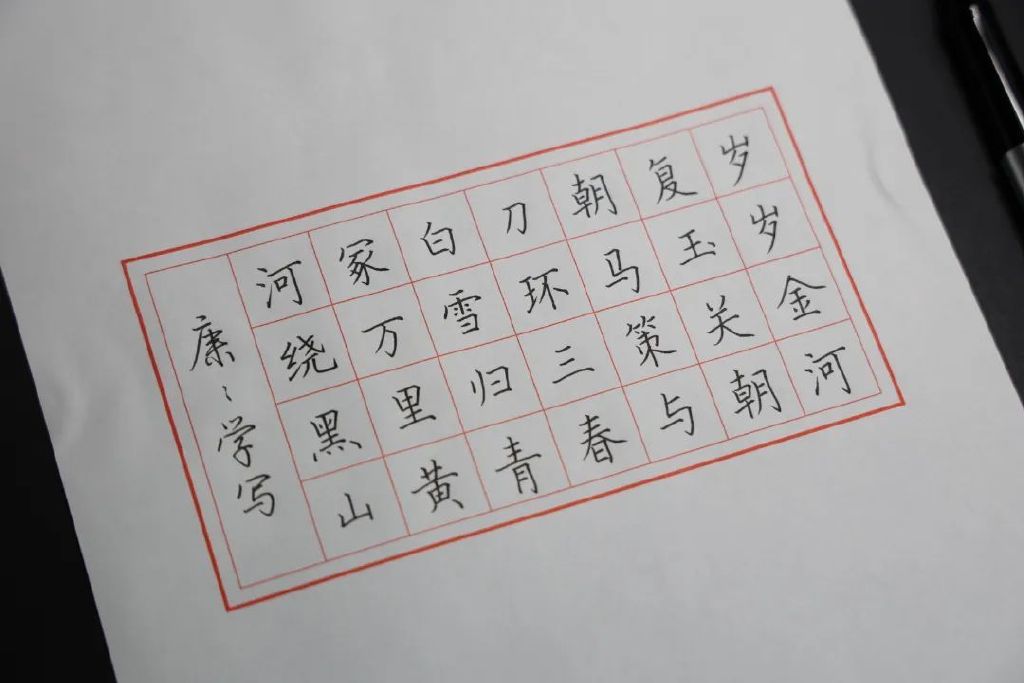 岁岁金河
复玉关
朝马策与朝
刀环三春
白雪归青
冢万里黄
河绕黑山
康〻学写